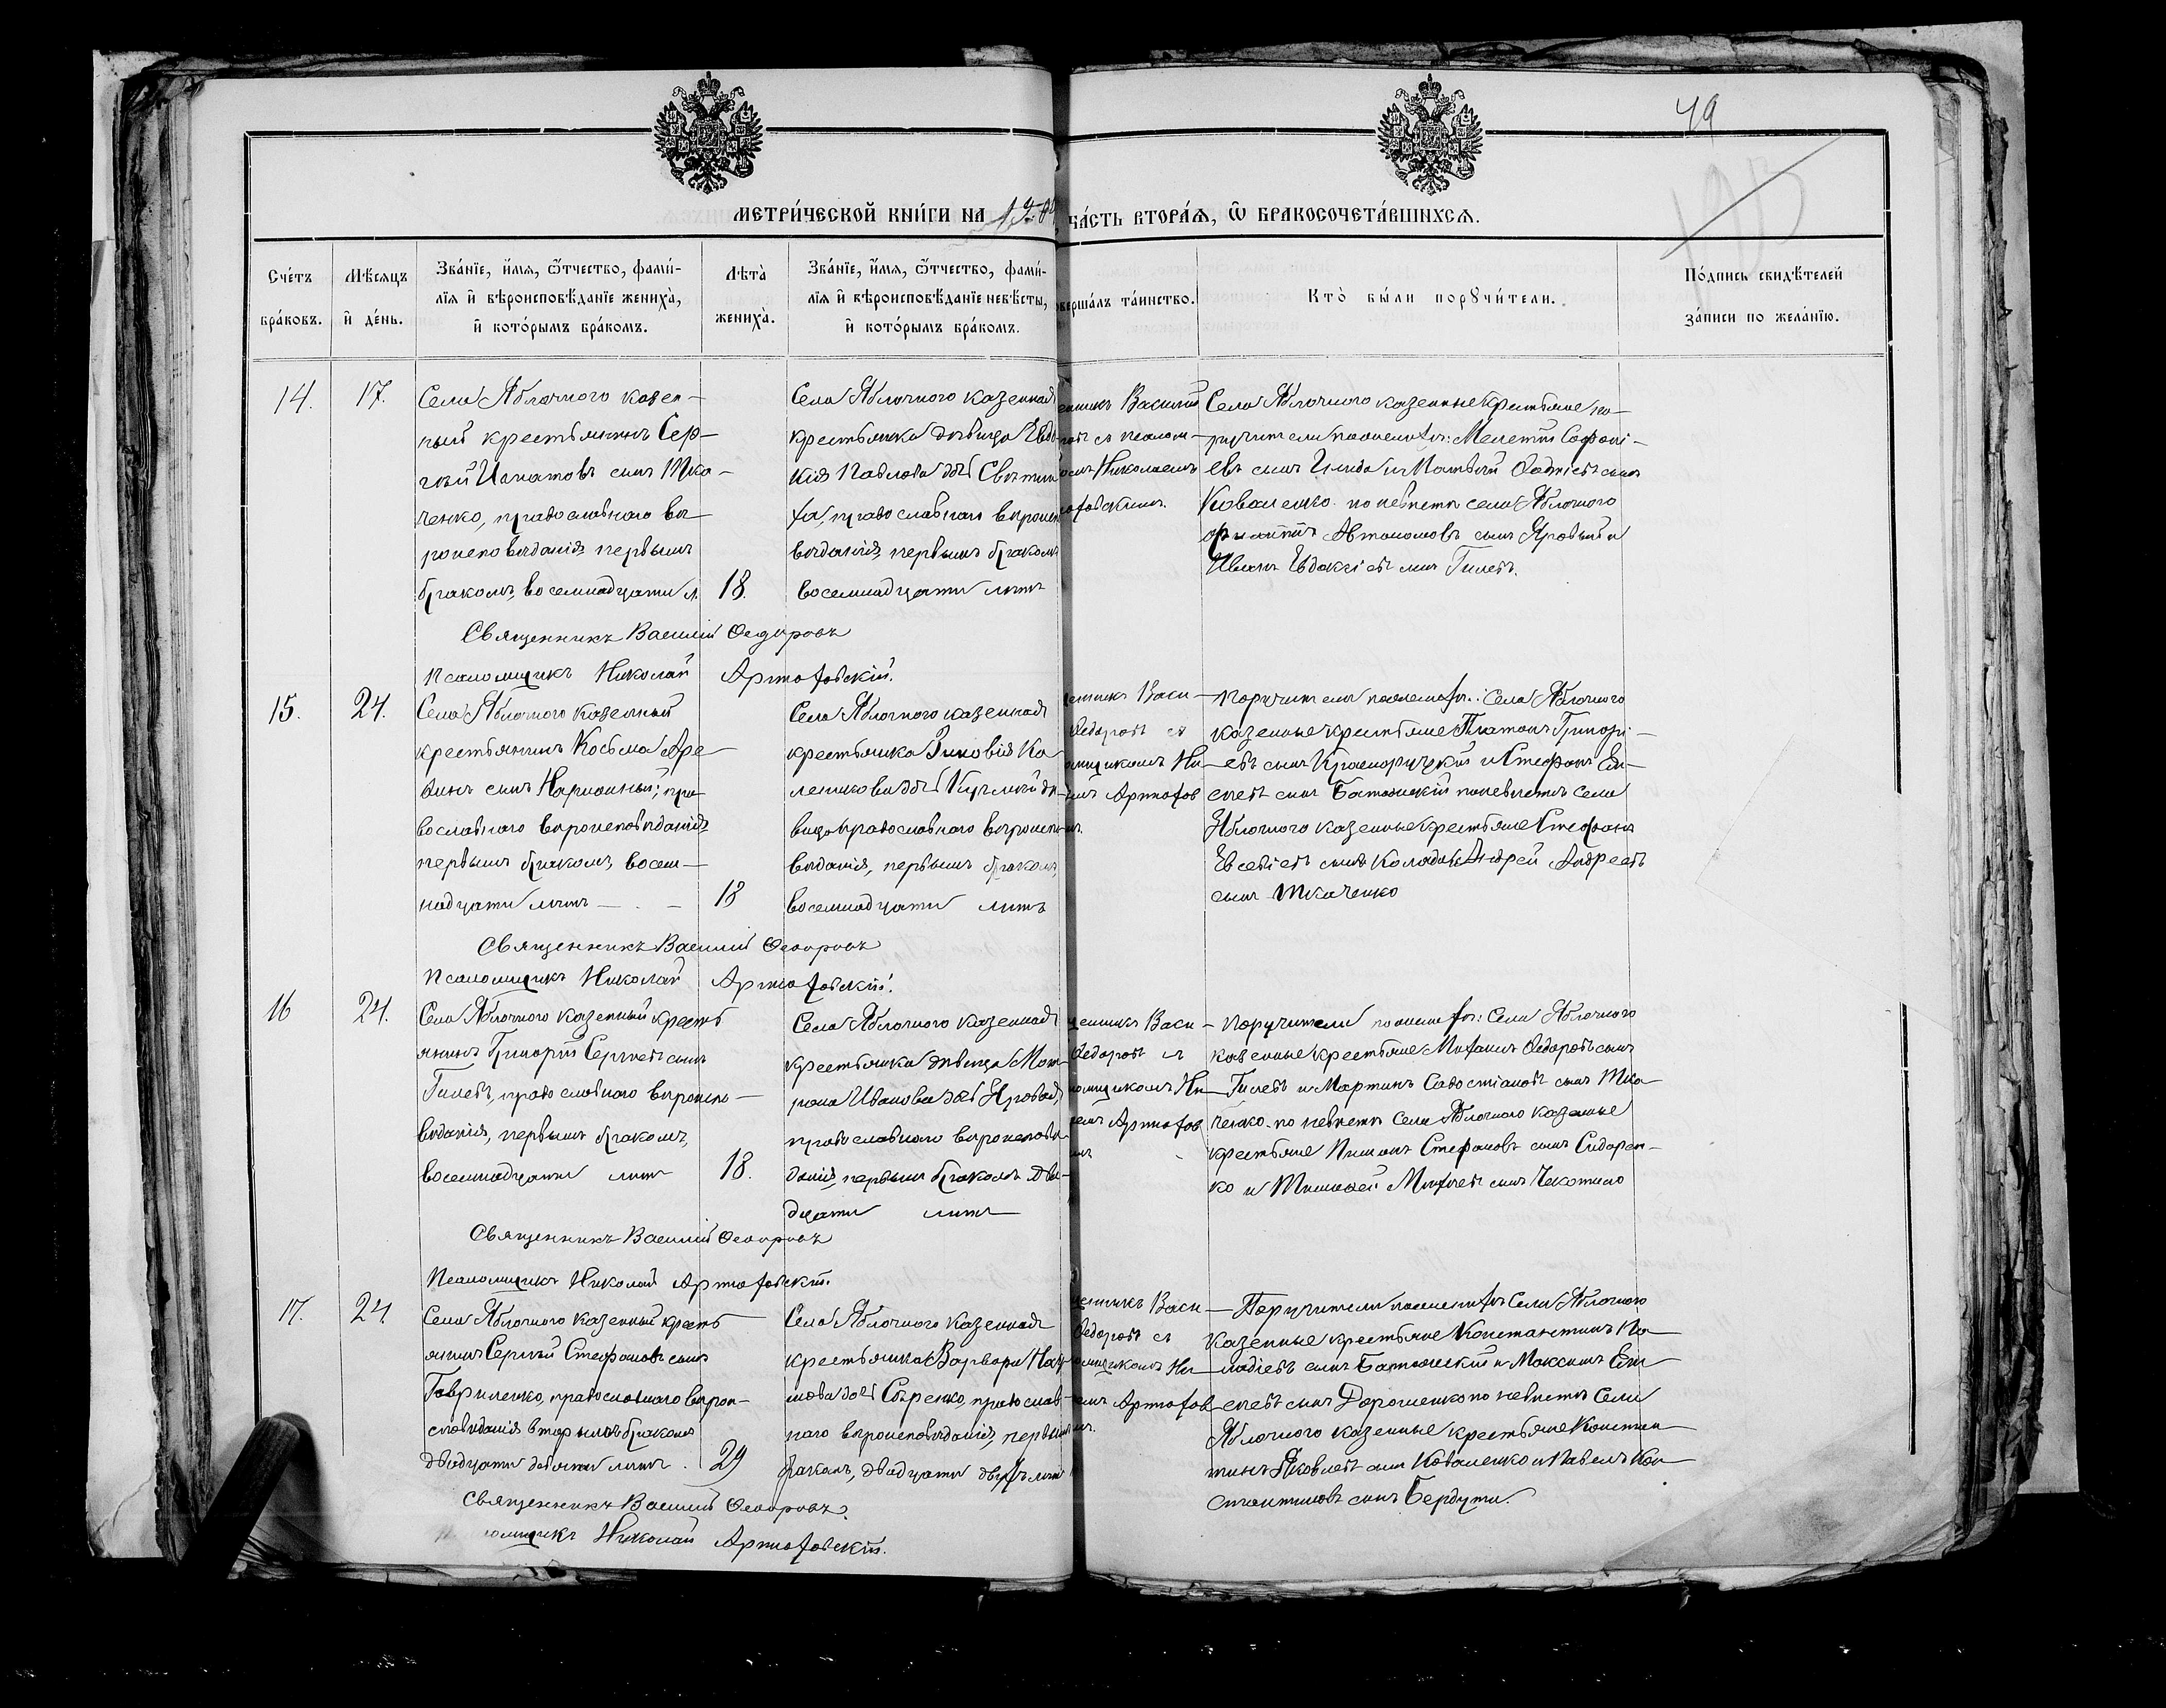 49
МЕТРИ́ЧЕСКОЙ КНИ́ГИ НА
ЧА́СТЬ ВТОРА́Я, Ѿ БРАКОСОЧЕТА́ВШИХСѦ.
Сче́тъ бра́ковъ.
Мѣ́сѧцъ и҆ де́нь.
Зва́нїе, и҆́мѧ, ѻ҆́тчество, фами́-
лїѧ и҆ вѣроисповѣ́данїе жениха̀,
и҆ кото́рымъ бра́комъ.
Лѣта̀ жениха̀.
Зва́нїе, и҆́мѧ, ѻ҆́тчество, фами́-
лїѧ и҆ вѣроисповѣ́данїе невѣ́сты,
и҆ кото́рымъ бра́комъ.
вершáлъ тáинство.
Кто̀ бы́ли порꙋчи́тели.
По́дпись свидѣ́телей
за́писи по жела́нїю.
14.
17.
Села Яблочного казен-
ный крестьянинъ Сер-
гѣй Игнатовъ сынъ Тка-
ченко, православнаго вѣ-
роисповѣданія, первымъ
бракомъ, восемнадцати л.
18.
Села Яблочного казенная
крестьянка дѣвица Евдо-
кія Павлова дочь
православнаго вѣроиспо
вѣданія, первымъ бракомъ
восемнадцати лѣтъ
Василій
съ псалом-
Николаемъ
Села Яблочного казенные крестьяне по-
ручители по женихѣ: Мелетій Софоні-
евъ сынъ и Матвѣй сынъ
Коваленко. по невѣстѣ села Яблочного
Автономовъ сынъ Яровый и
Иванъ Евдокіевъ сынъ Гилевъ.
Священникъ Василій Ѳедоровъ
Псаломщикъ Николай Артюховскій.
15.
24.
Села Яблочного казенный
крестьянинъ Косьма Аре-
сынъ пра-
вославнаго вѣроисповѣданія
первымъ бракомъ, восем-
надцати лѣтъ
18
Села Яблочного казенная
крестьянка Зиновія Ка
дочь дѣ-
вица православнаго вѣроиспо
вѣданія, первымъ бракомъ,
восемнадцати лѣтъ
Васи-
Ѳедоровъ съ
омщикомъ Ни-
Артюхов
Поручители по женихѣ: Села Яблочного
казенные крестьяне Платонъ Григорі-
евъ сынъ и Стефанъ Ели-
сеевъ сынъ по невѣстѣ села
Яблочного казенные крестьяне Стефанъ
Евсеевъ сынъ Андрей Андреевъ
сынъ Ткаченко
Священникъ Василій Ѳедоровъ
Псаломщикъ Николай Артюховскій.
16
24.
Села Яблочного казенный кресть
янинъ Григорій Сергѣевъ сынъ
Гилевъ, православнаго вѣроиспо-
вѣданія, первымъ бракомъ,
восемнадцати лѣтъ
18.
Села Яблочного казенная
крестьянка дѣвица Мат-
рона Иванова дочь Яровая,
православнаго вѣроисповѣ
данія, первымъ бракомъ два-
дцати лѣтъ
Васи-
Ѳедоровъ съ
омщикомъ Ни-
Артюхов
Поручители по женихѣ: Села Яблочного
казенные крестьяне Михаилъ Ѳедоровъ сынъ
Гилевъ и Мартинъ Савостіановъ сынъ Тка-
ченко. по невѣстѣ Села Яблочного казенные
крестьяне Пименъ Стефановъ сынъ Сидорен-
ко и Тимофей сынъ
Священникъ Василій Ѳедоровъ
Псаломщикъ Николай Артюховскій.
17.
24
Села Яблочного казенный кресть
янинъ Сергѣй Стефановъ сынъ
Гавриленко, православнаго вѣрои-
сповѣданія вторымъ бракомъ
двадцати девяти лѣтъ.
29
Села Яблочного казенная
крестьянка Варвара
дочь Сѣренко, православ-
наго вѣроисповѣданія, первым
бракомъ, двадцати двухъ лѣтъ
Васи-
Ѳедоровъ съ
омщикомъ Ни-
Артюхов
Поручители по женихѣ Села Яблочного
казенные крестьяне Константинъ Па-
ладіевъ сынъ и Максимъ Ели-
сеевъ сынъ Дорошенко по невѣстѣ Села
Яблочного казенные крестьяне Констан
тинъ Яковлевъ сынъ Коваленко и Павелъ Кон
стантиновъ сынъ Бердути.
Священникъ Василій Ѳедоровъ.
омщикъ Николай Артюховскій.